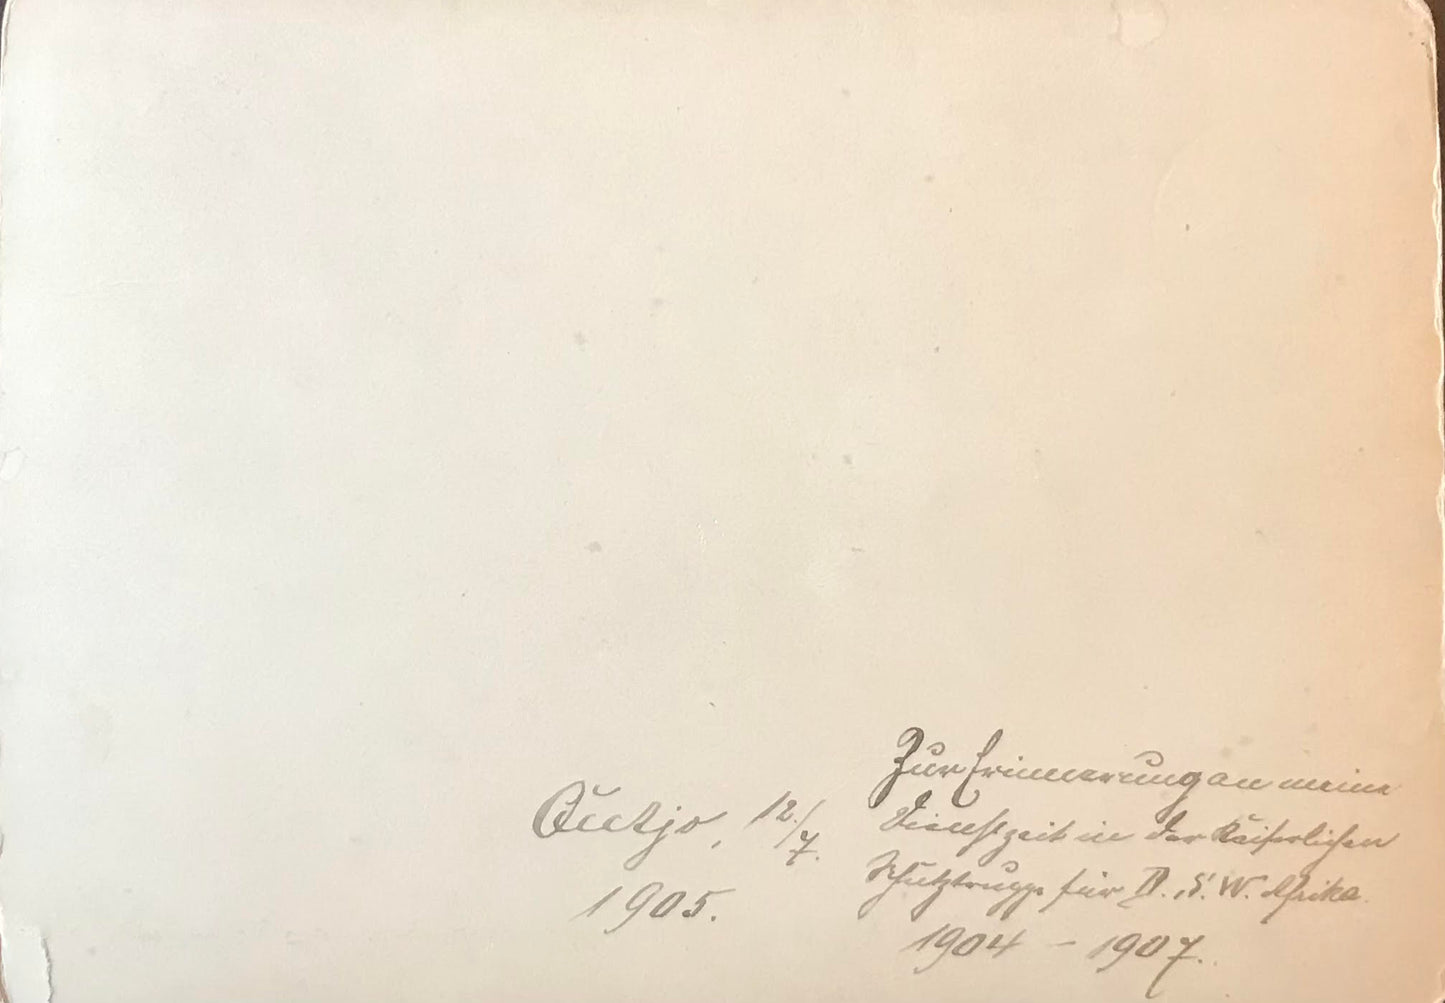 Outjo, 12./7.
1905.
Zur Erinnerung an meine
Dienstzeit in der Kaiserlichen
Schutztruppe für D. S. W. Afrika.
1904 – 1907.